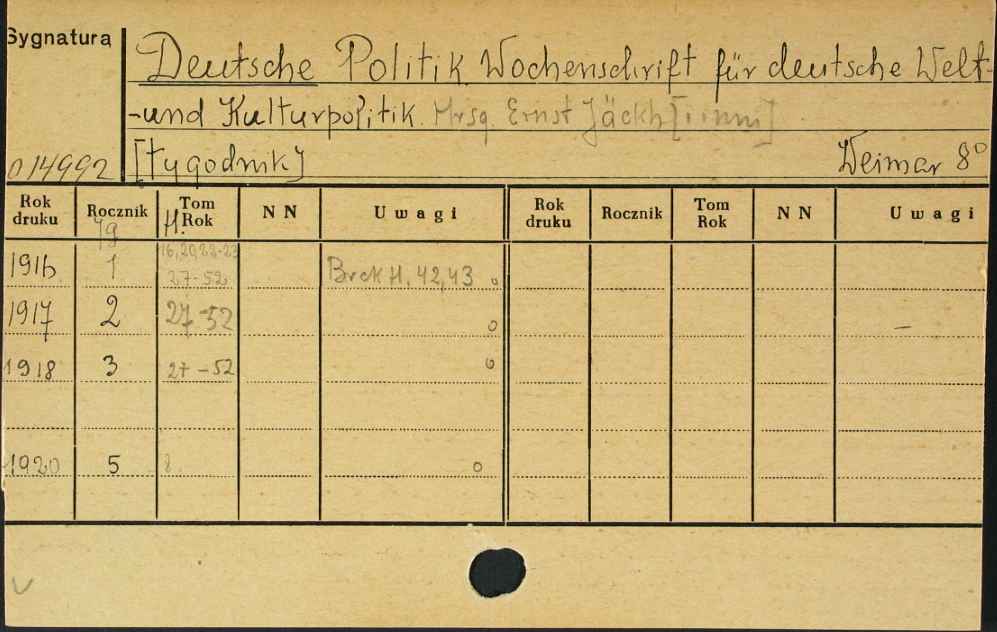 Sygnatura
Deutsche Politik. Wochenschrift für deutsche Welt-
-und Kulturpolitik. Hrsg. Ernst Jäckh [i inni]
014992 [tygodnik] Weimar 8°
Rok druku Rocznik Tom Rok NN Uwagi Rok druku Rocznik Tom Rok NN Uwagi
Jg H.
1916 1 27-52 Brak H. 42,43 o
1917 2 27-52 o —
1918 3 27-52 o
1920 5 o